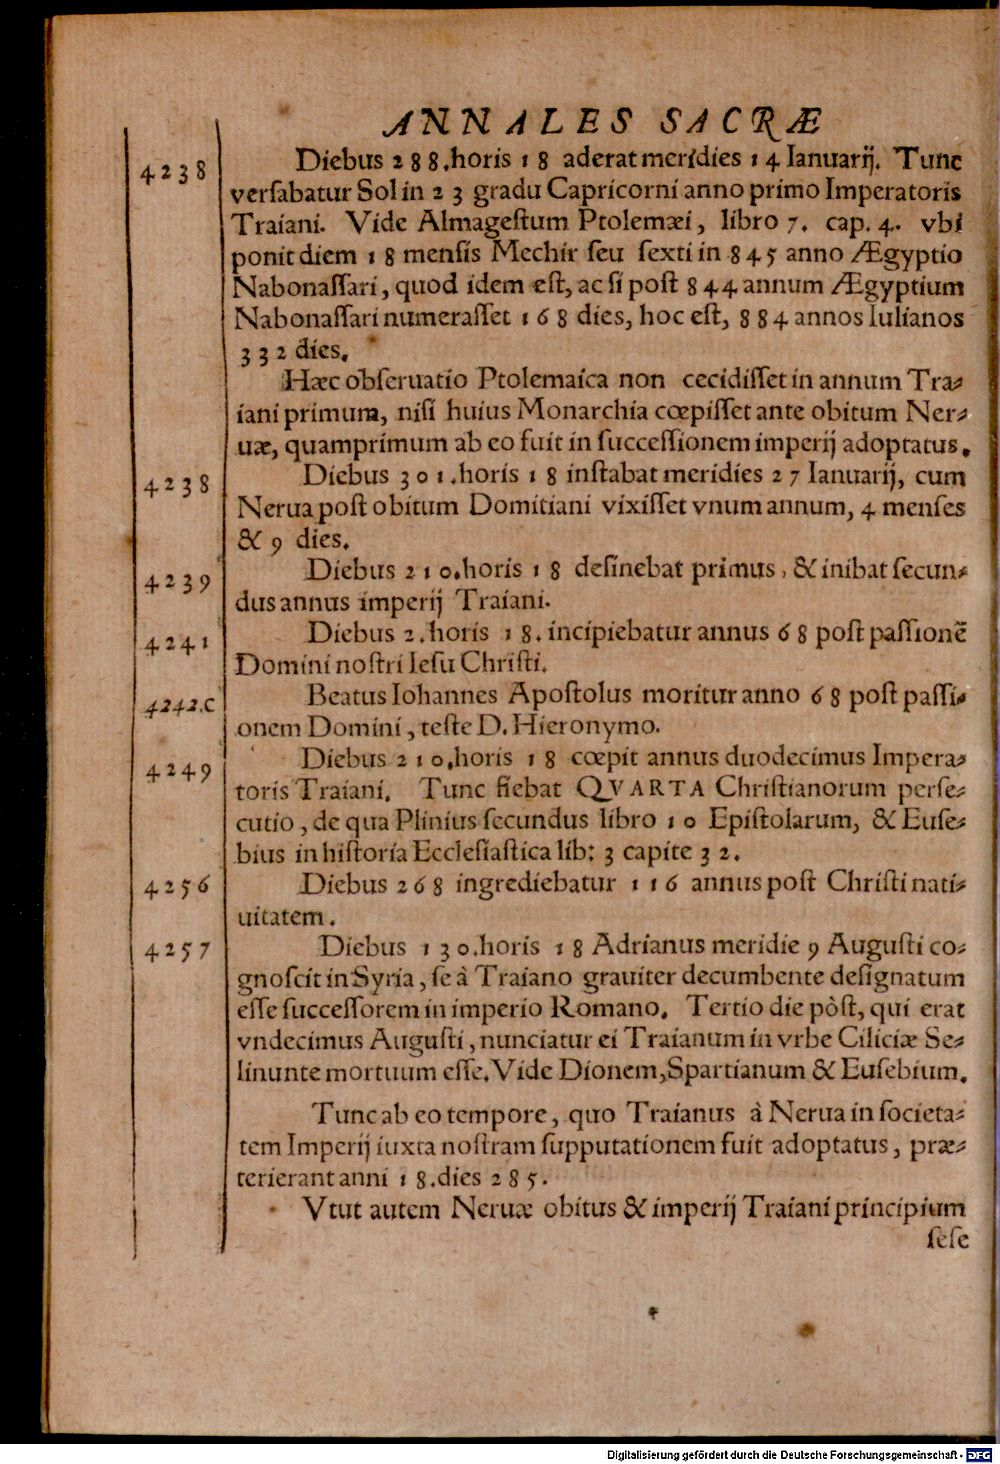 ANNALES SACRÆ
4238 Diebus 288.horis 18 aderat meridies 14 Ianuarij. Tunc
versabatur Sol in 23 gradu Capricorni anno primo Imperatoris
Traiani. Vide Almagestum Ptolemæi, libro 7. cap. 4. vbi
ponit diem 18 mensis Mechir seu sexti in 845 anno Ægyptio
Nabonassari, quod idem est, ac si post 844 annum Ægyptium
Nabonassari numerasset 168 dies, hoc est, 884 annos Iulianos
332 dies.
Hæc obseruatio Ptolemaica non cecidisset in annum Tra-
iani primum, nisi huius Monarchia cœpisset ante obitum Ner-
uæ, quamprimum ab eo fuit in successionem imperij adoptatus.
4238 Diebus 301.horis 18 instabat meridies 27 Ianuarij, cum
Nerua post obitum Domitiani vixisset vnum annum, 4 menses
& 9 dies.
4239 Diebus 210.horis 18 desinebat primus, & inibat secun-
dus annus imperij Traiani.
4241 Diebus 2.horis 18. incipiebatur annus 68 post passionē
Domini nostri Iesu Christi.
4242.C Beatus Iohannes Apostolus moritur anno 68 post passi-
onem Domini, teste D. Hieronymo.
4249 Diebus 210.horis 18 cœpit annus duodecimus Impera-
toris Traiani. Tunc fiebat QVARTA Christianorum perse-
cutio, de qua Plinius secundus libro 10 Epistolarum, & Euse-
bius in historia Ecclesiastica lib: 3 capite 32.
4256 Diebus 268 ingrediebatur 116 annus post Christi nati-
uitatem.
4257 Diebus 130.horis 18 Adrianus meridie 9 Augusti co-
gnoscit in Syria, se à Traiano grauiter decumbente designatum
esse successorem in imperio Romano. Tertio die pòst, qui erat
vndecimus Augusti, nunciatur ei Traianum in vrbe Ciliciæ Se-
linunte mortuum esse. Vide Dionem, Spartianum & Eusebium.
Tunc ab eo tempore, quo Traianus à Nerua in societa-
tem Imperij iuxta nostram supputationem fuit adoptatus, præ-
terierant anni 18.dies 285.
Vtut autem Neruæ obitus & imperij Traiani principium
sese
Digitalisierung gefördert durch die Deutsche Forschungsgemeinschaft - DFG